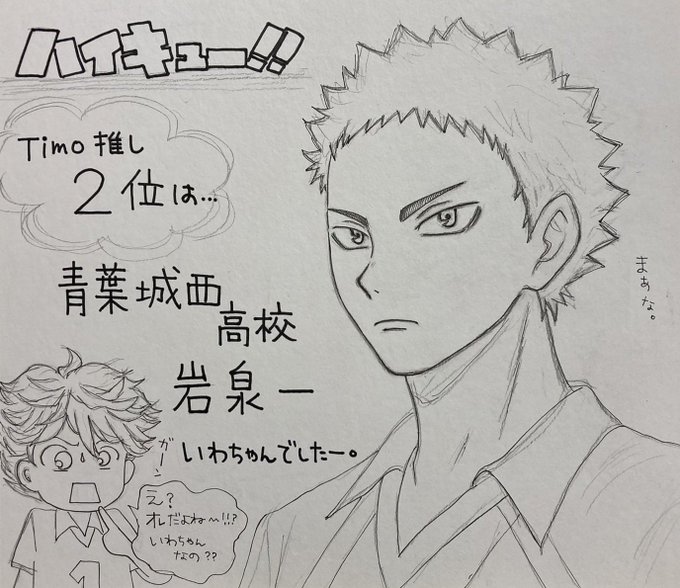 ハイキュー!!
Timo 推し
2位は…
青葉城西
高校
岩泉一
いわちゃんでしたー。
まぁな。
ガーン
え?
オレだよね〜!!?
いわちゃん
なの??
1